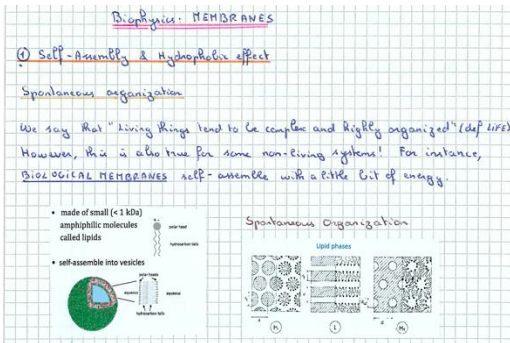 Biophysics: MEMBRANES
① Self-Assembly & Hydrophobic effect
Spontaneous organization
We say that "Living things tend to be complex and highly organized" (def LIFE)
However, this is also true for some non-living systems! For instance,
BIOLOGICAL MEMBRANES self-assemble with a little bit of energy.
• made of small (< 1 kDa)
amphiphilic molecules
called lipids
polar head
hydrocarbon tails
• self-assemble into vesicles
polar heads
aqueous
aqueous
hydrocarbon tails
Spontaneous Organization
Lipid phases
H₁
L
H₂